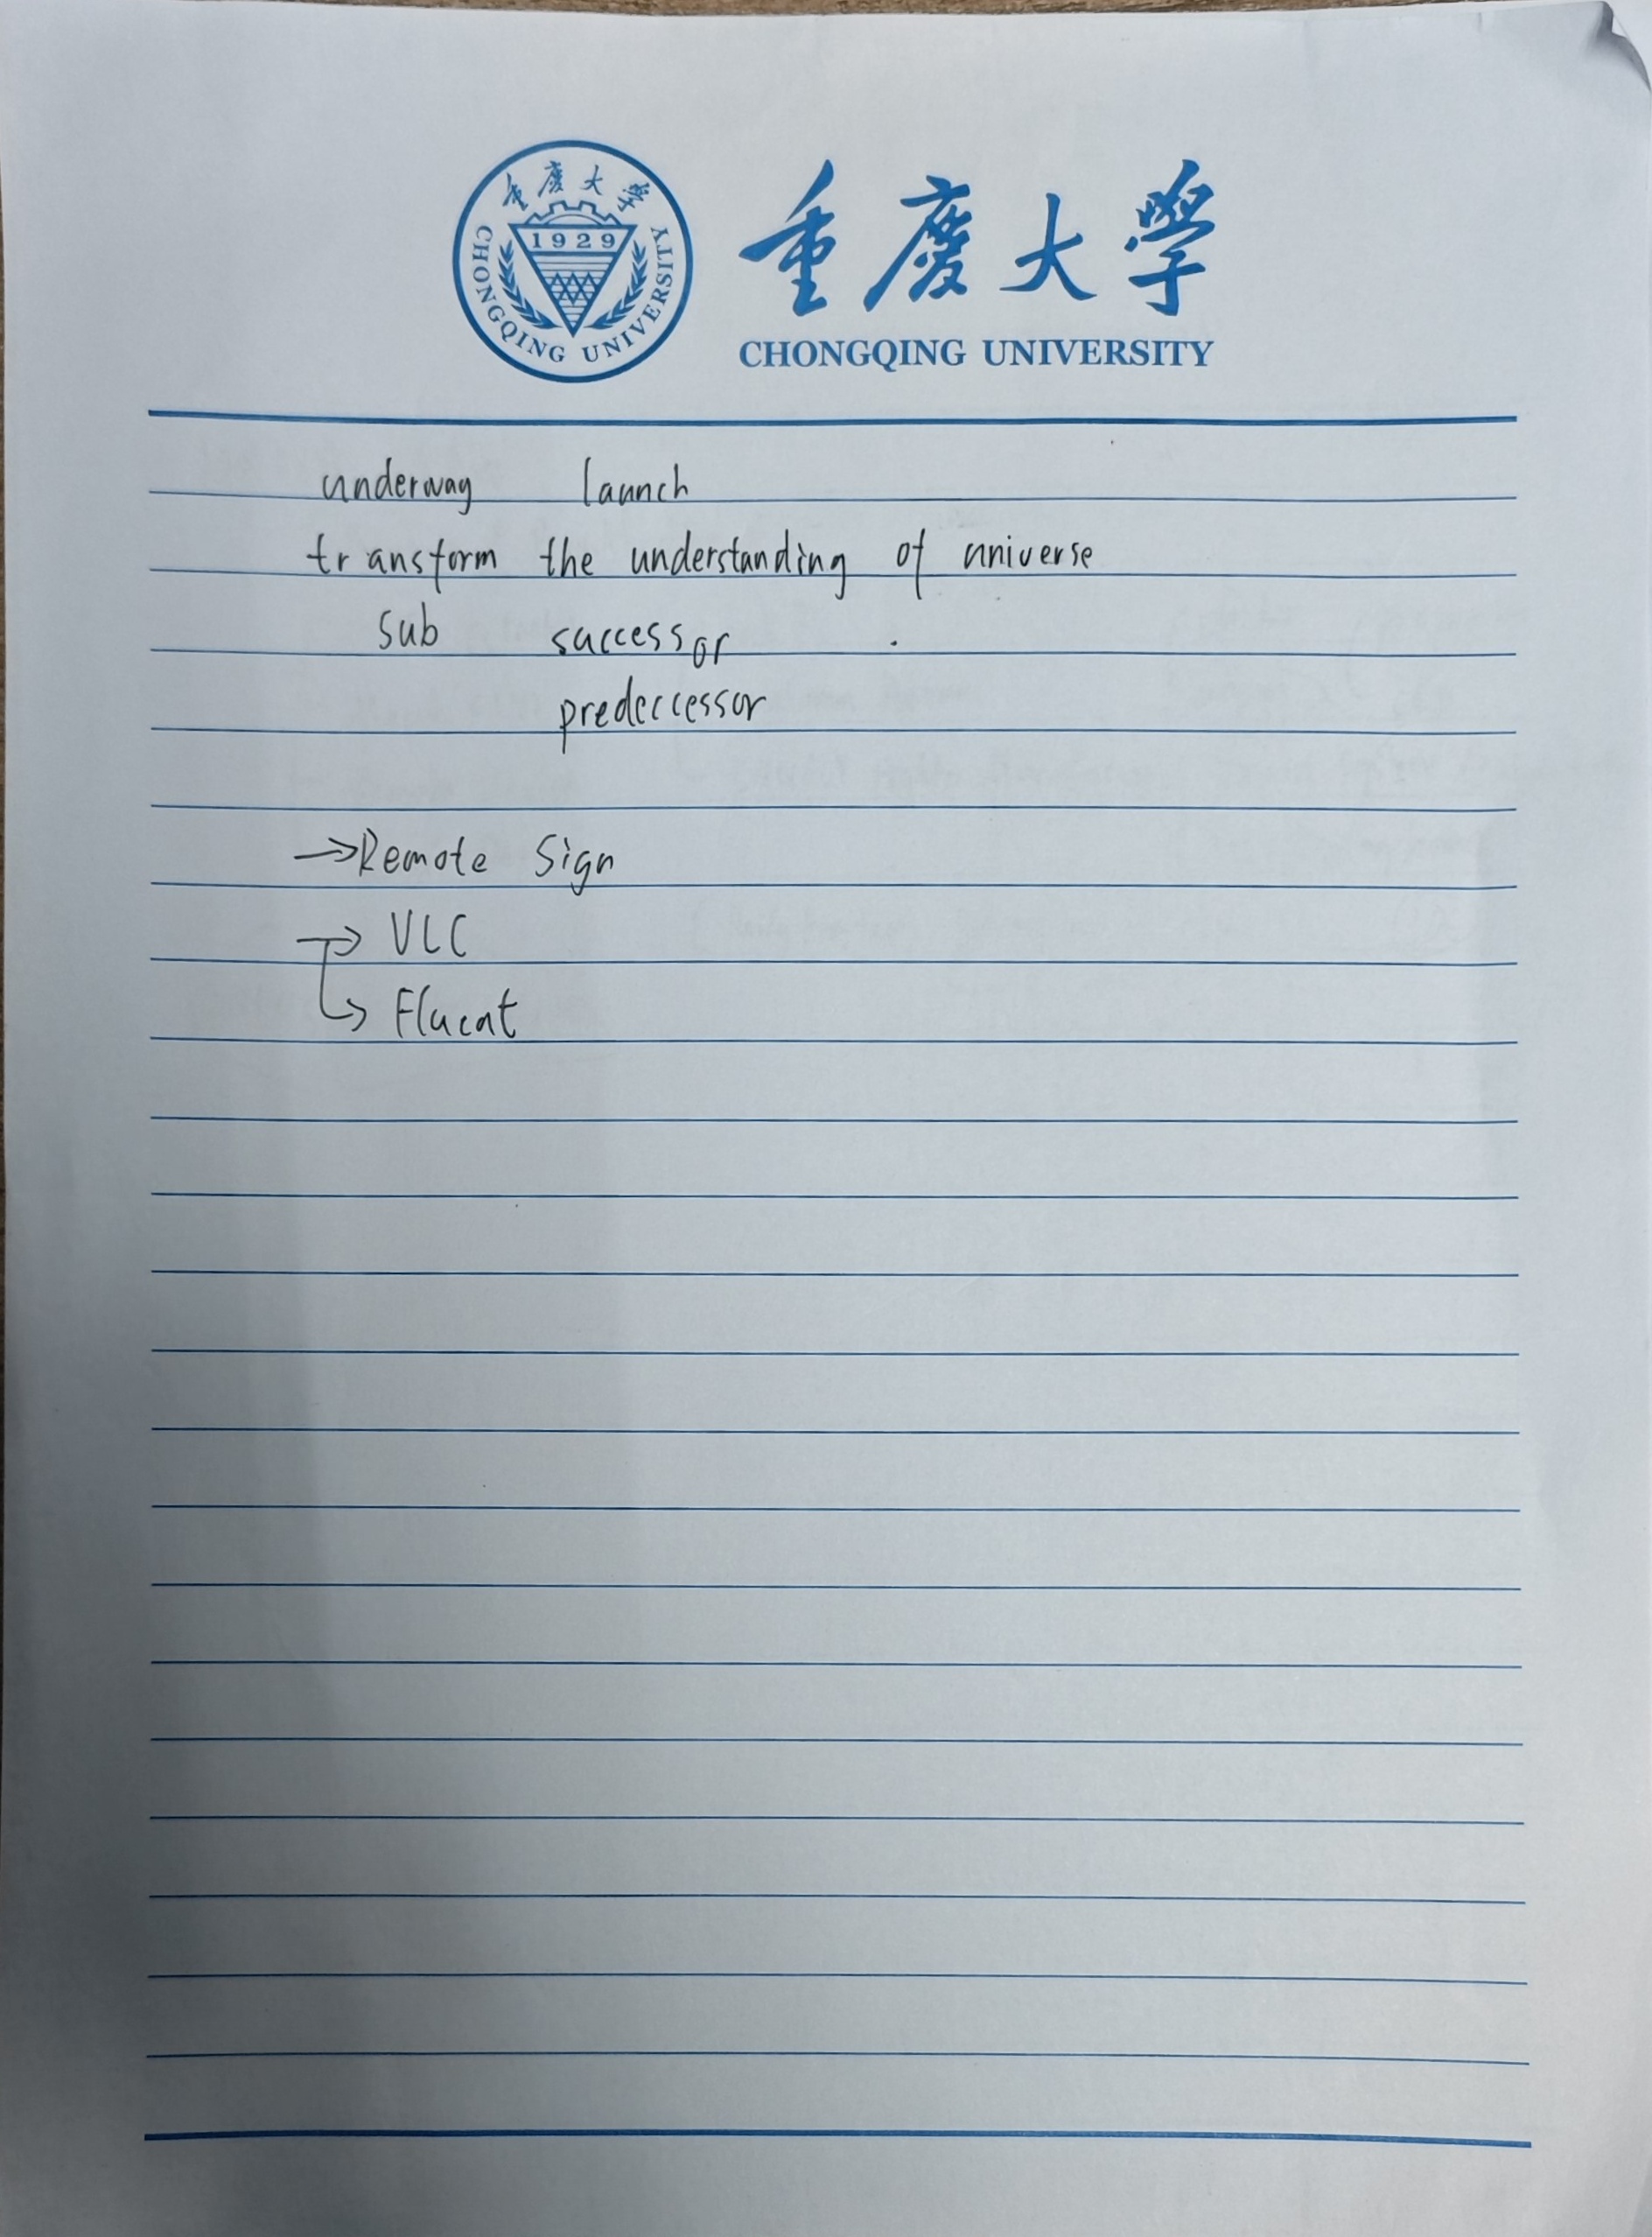 重慶大學
1929
CHONGQING UNIVERSITY
重慶大學
CHONGQING UNIVERSITY
underway launch
transform the understanding of universe
sub successor
predeccessor
→Remote Sign
→ VLC
↳ Fluent